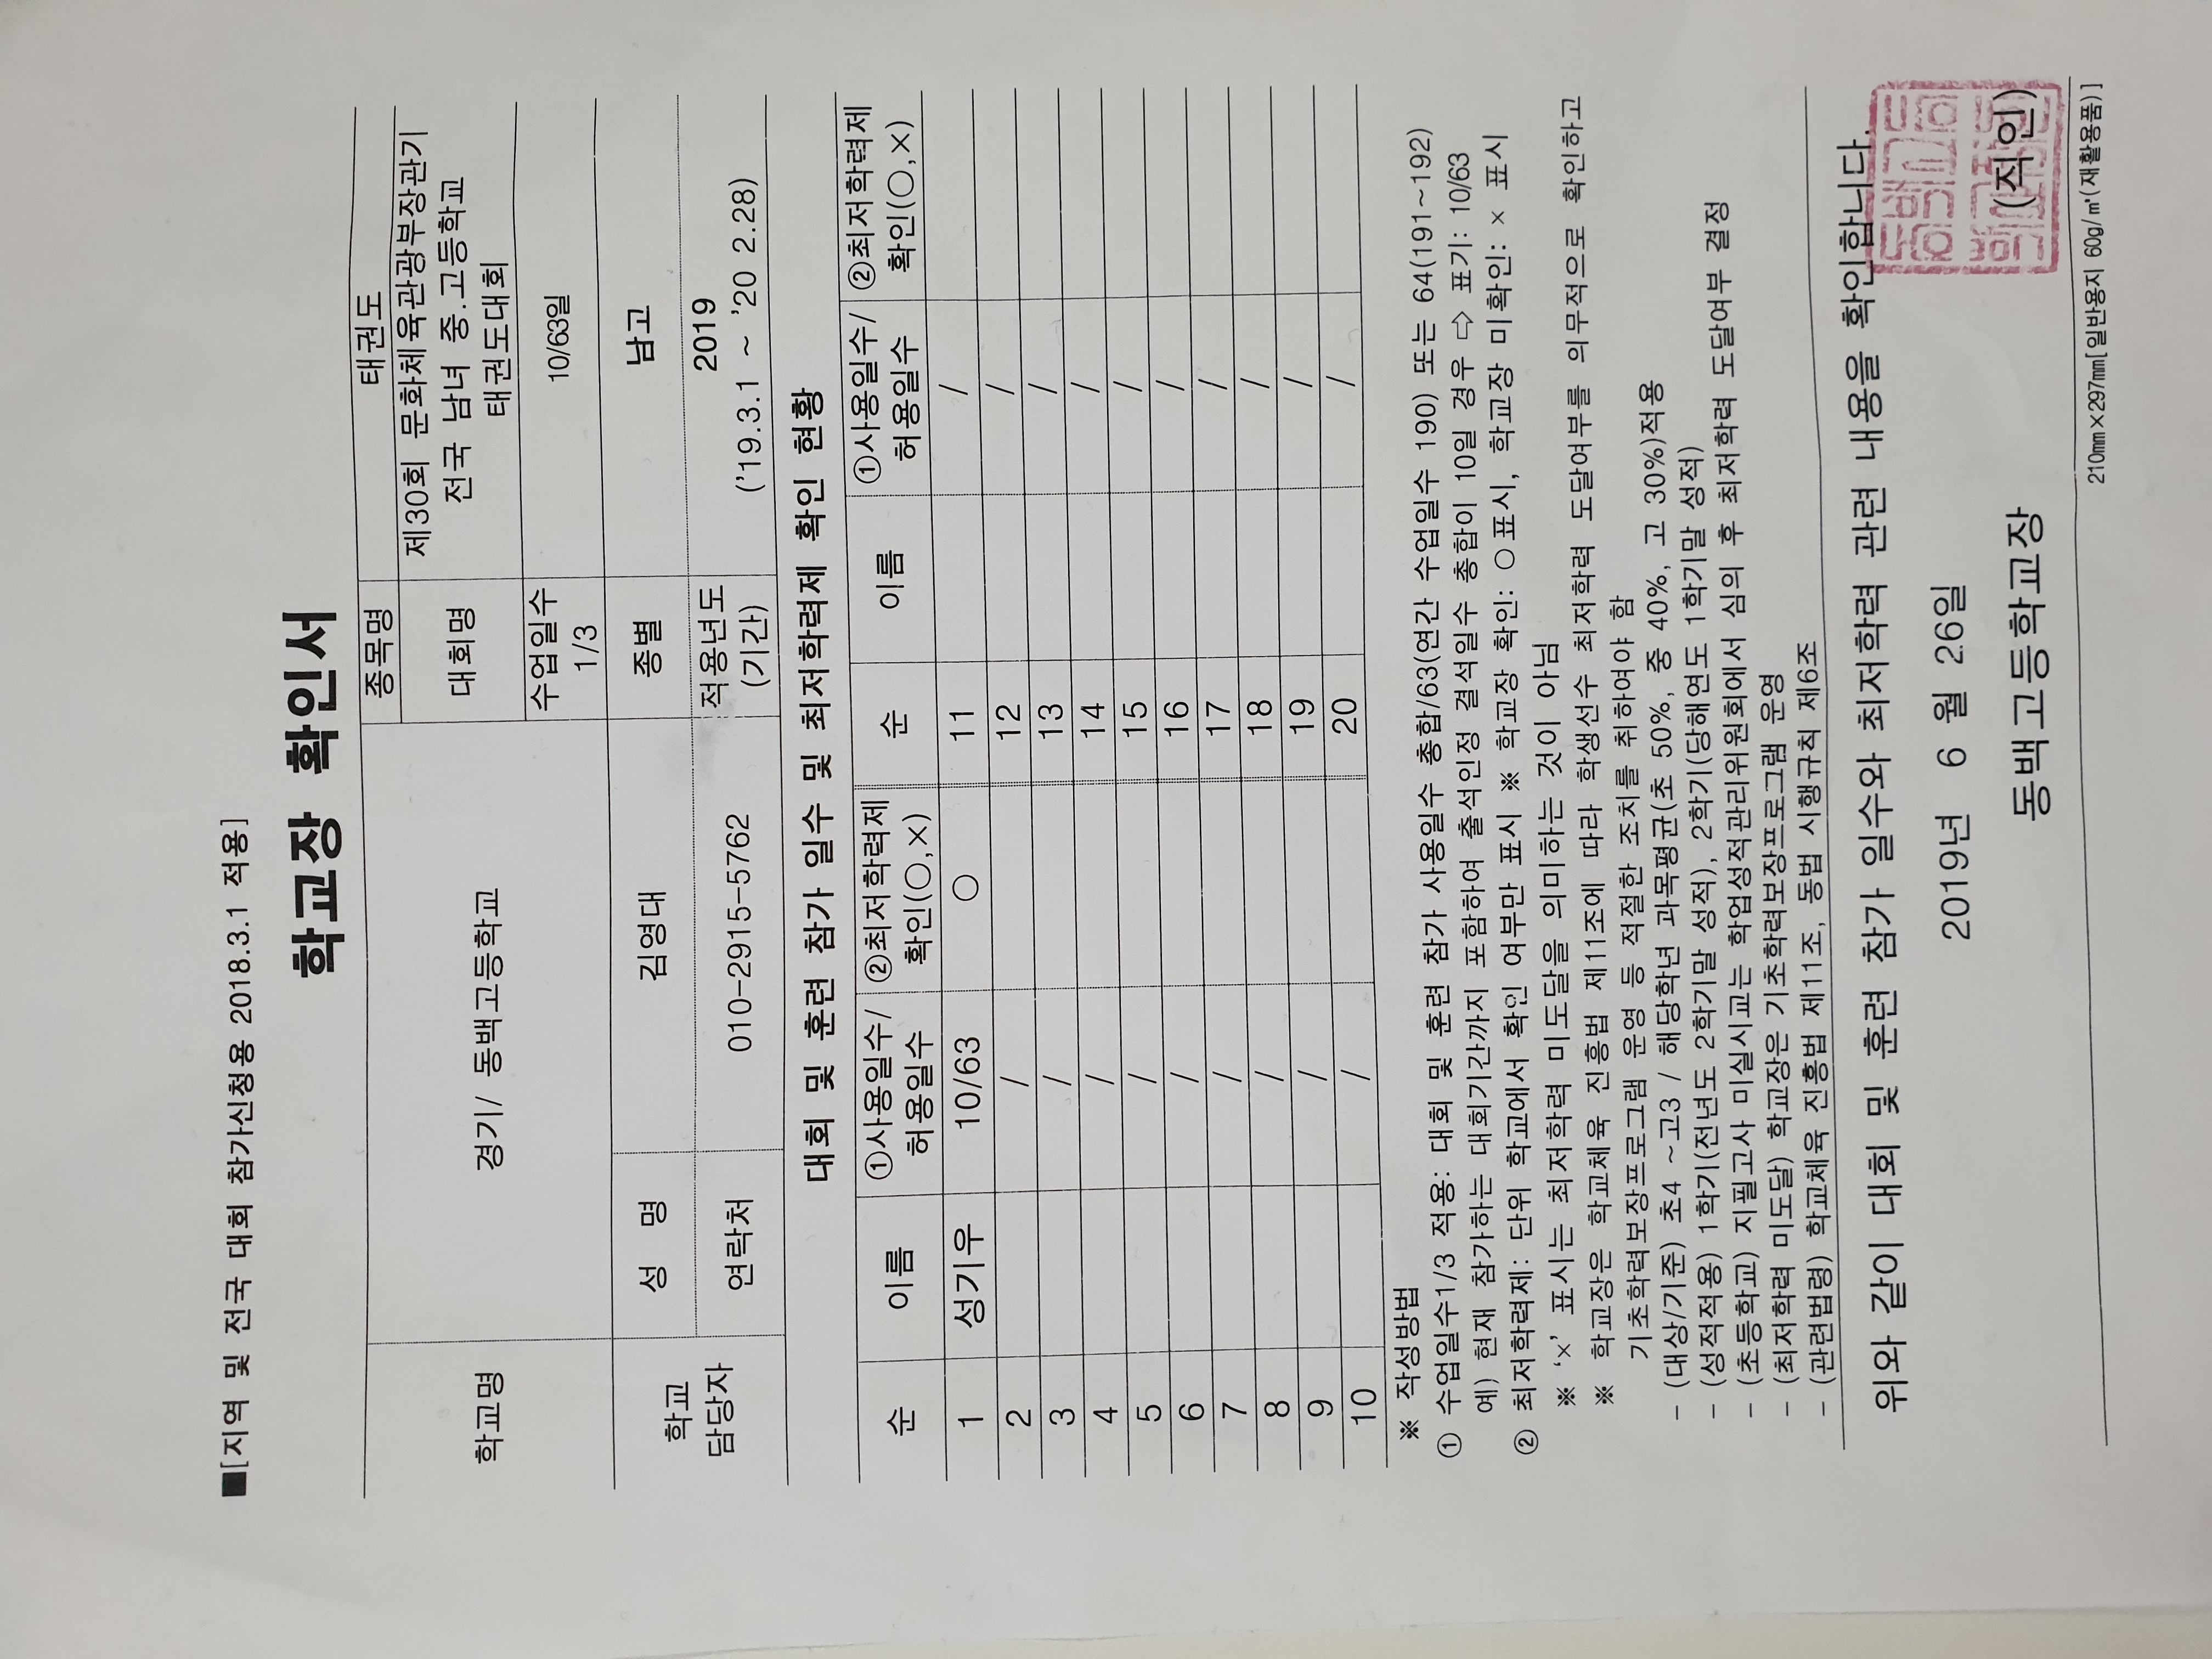 ■[지역 및 전국 대회 참가신청용 2018.3.1 적용]
학교장 확인서
학교명
경기/ 동백고등학교
종목명
태권도
대회명
제30회 문화체육관광부장관기
전국 남녀 중.고등학교
태권도대회
수업일수
1/3
10/63일
학교
담당자
성 명
김영대
종별
남고
연락처
010-2915-5762
적용년도
(기간)
2019
('19.3.1 ~ '20 2.28)
대회 및 훈련 참가 일수 및 최저학력제 확인 현황
순 이름 ①사용일수/ 허용일수 ②최저학력제 확인(○,×) 순 이름 ①사용일수/ 허용일수 ②최저학력제 확인(○,×)
1 성기우 10/63 ○ 11 /
2 / 12 /
3 / 13 /
4 / 14 /
5 / 15 /
6 / 16 /
7 / 17 /
8 / 18 /
9 / 19 /
10 / 20 /
※ 작성방법
① 수업일수1/3 적용: 대회 및 훈련 참가 사용일수 총합/63(연간 수업일수 190) 또는 64(191~192)
예) 현재 참가하는 대회기간까지 포함하여 출석인정 결석일수 총합이 10일 경우 ⇨ 표기: 10/63
② 최저학력제: 단위 학교에서 확인 여부만 표시 ※ 학교장 확인: ○ 표시, 학교장 미확인: × 표시
※ '×' 표시는 최저학력 미도달을 의미하는 것이 아님
※ 학교장은 학교체육 진흥법 제11조에 따라 학생선수 최저학력 도달여부를 의무적으로 확인하고
기초학력보장프로그램 운영 등 적절한 조치를 취하여야 함
- (대상/기준) 초4 ~고3 / 해당학년 과목평균(초 50%, 중 40%, 고 30%)적용
- (성적적용) 1학기(전년도 2학기말 성적), 2학기(당해연도 1학기말 성적)
- (초등학교) 지필고사 미실시교는 학업성적관리위원회에서 심의 후 최저학력 도달여부 결정
- (최저학력 미도달) 학교장은 기초학력보장프로그램 운영
- (관련법령) 학교체육 진흥법 제11조, 동법 시행규칙 제6조
위와 같이 대회 및 훈련 참가 일수와 최저학력 관련 내용을 확인합니다.
2019년 6 월 26일
동백고등학교장 (직인)
210㎜×297㎜[일반용지 60g/㎡(재활용품)]